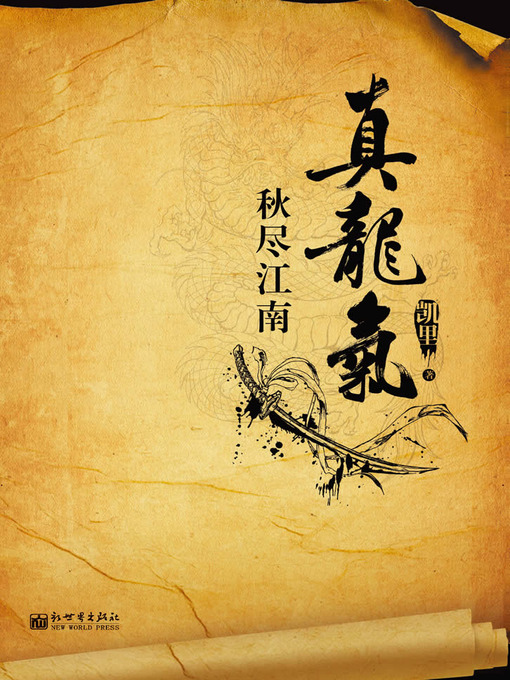 真龍氣
秋尽江南
凯里
著
新世界出版社
NEW WORLD PRESS